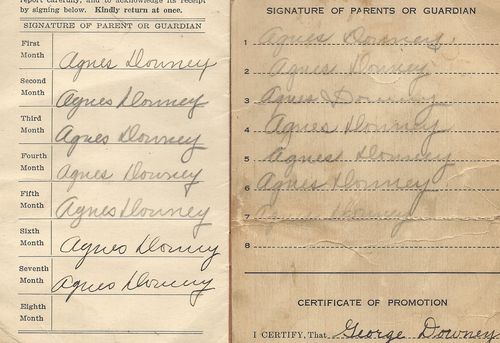 report carefully, and to acknowledge its receipt
by signing below. Kindly return at once.
SIGNATURE OF PARENT OR GUARDIAN
First Month Agnes Downey
Second Month Agnes Downey
Third Month Agnes Downey
Fourth Month Agnes Downey
Fifth Month Agnes Downey
Sixth Month Agnes Downey
Seventh Month Agnes Downey
Eighth Month
SIGNATURE OF PARENTS OR GUARDIAN
1 Agnes Downey
2 Agnes Downey
3 Agnes Downey
4 Agnes Downey
5 Agnes Downey
6 Agnes Downey
7 Agnes Downey
8
CERTIFICATE OF PROMOTION
I CERTIFY, That George Downey